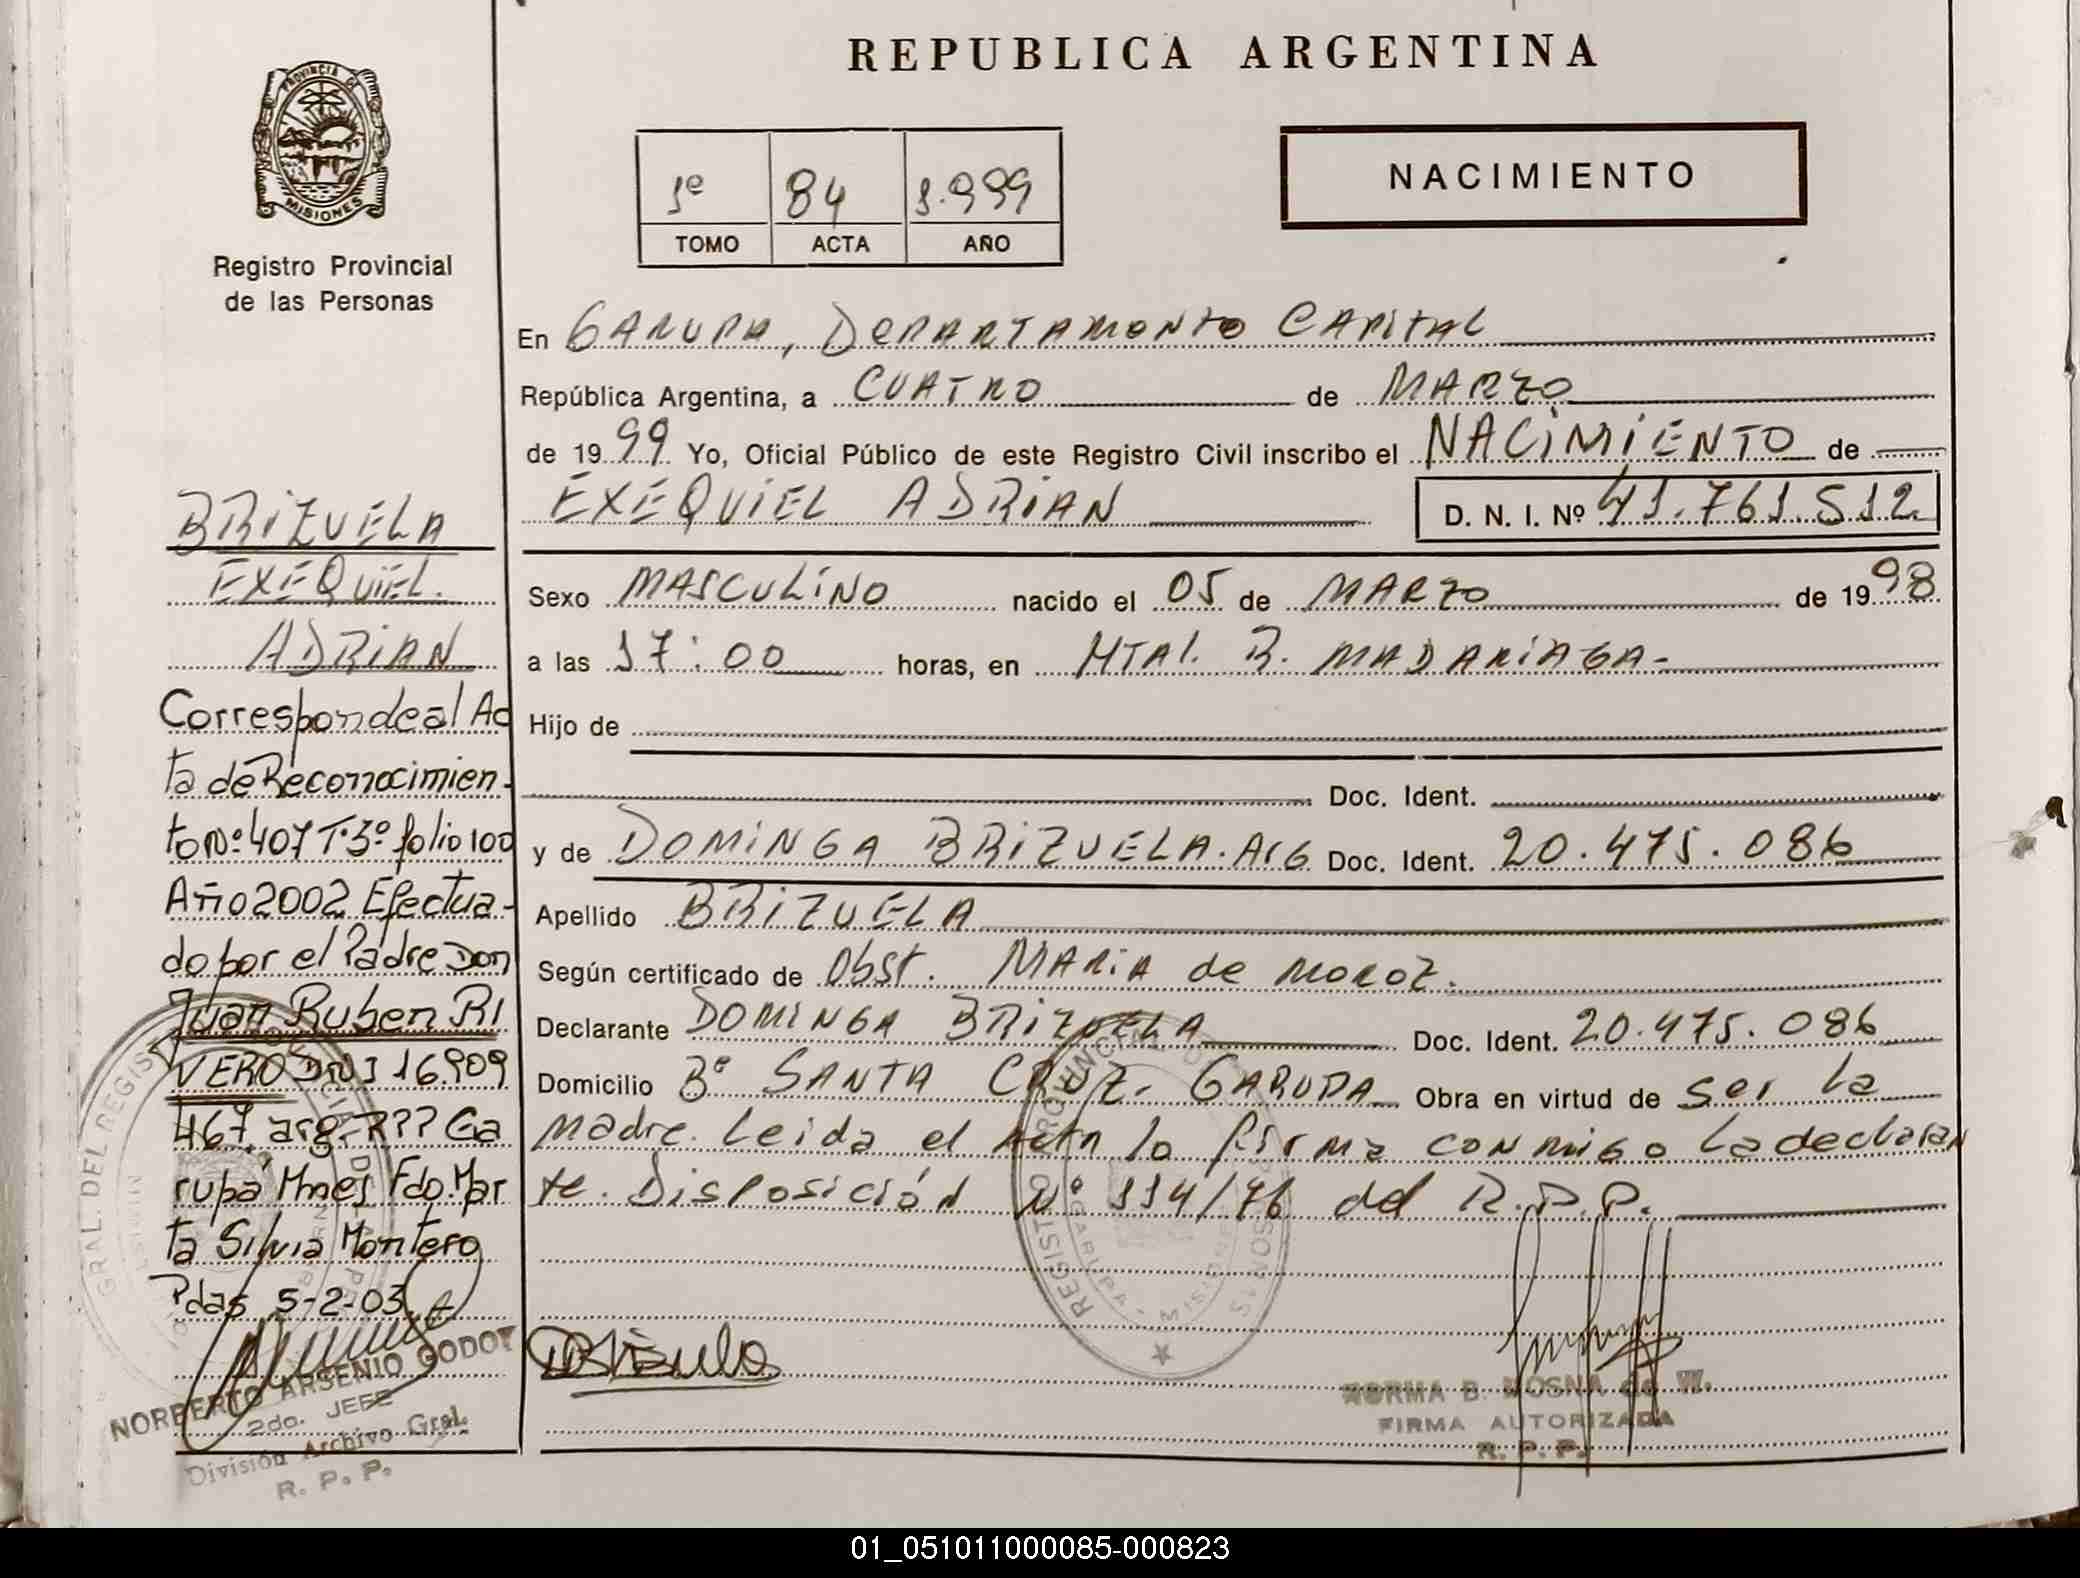 PROVINCIA DE
MISIONES
Registro Provincial
de las Personas
BRIZUELA
EXEQUIEL
ADRIAN
Corresponde al Ac
ta de Reconocimien-
to Nº 407 Tº 3º folio 100
Año 2002 Efectua-
do por el Padre Don
Juan Ruben RI
VERO DNI 16.909
467, arg. Ga
rupá Mnes Fdo. Mar
ta Silvia Montero
Pdas 5-2-03
NORBERTO ARSENIO GODOY
2do. JEFE
División Archivo Gral.
R. P. P.
REPUBLICA ARGENTINA
1º 84 1.999
TOMO ACTA AÑO
NACIMIENTO
En GARUPA, DEPARTAMENTO CAPITAL
República Argentina, a CUATRO de MARZO
de 1999 Yo, Oficial Público de este Registro Civil inscribo el NACIMIENTO de
EXEQUIEL ADRIAN D. N. I. Nº 41.761.512
Sexo MASCULINO nacido el 05 de MARZO de 1998
a las 17:00 horas, en HTAL. R. MADARIAGA-
Hijo de
Doc. Ident.
y de DOMINGA BRIZUELA. Arg Doc. Ident. 20.475.086
Apellido BRIZUELA
Según certificado de Obst. MARIA de MOROZ.
Declarante DOMINGA BRIZUELA Doc. Ident. 20.475.086
Domicilio Bº SANTA CRUZ. GARUPA Obra en virtud de ser la
madre. Leida el Acta la firma conmigo la declaran
te. Disposición Nº 114/76 del R.P.P.
NORMA B. MOSNA de W.
FIRMA AUTORIZADA
R. P. P.
01_051011000085-000823